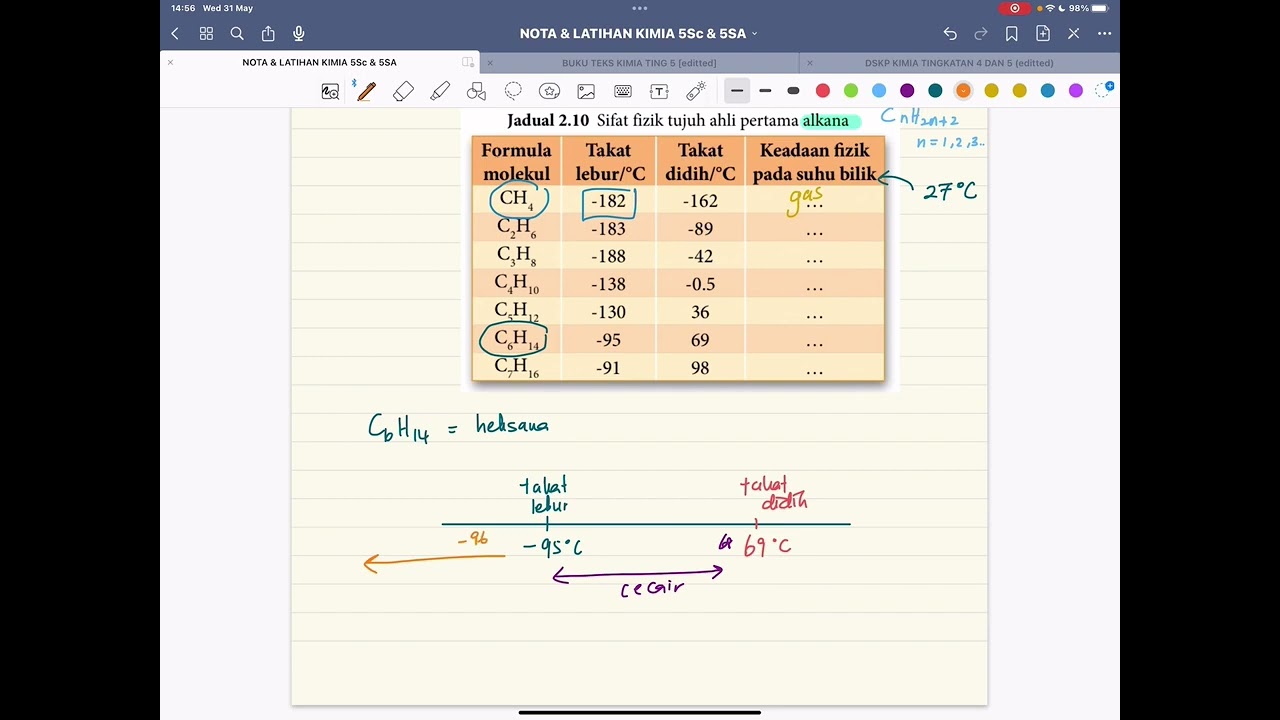 14:56 Wed 31 May
98%
NOTA & LATIHAN KIMIA 5Sc & 5SA
NOTA & LATIHAN KIMIA 5Sc & 5SA
BUKU TEKS KIMIA TING 5 [editted]
DSKP KIMIA TINGKATAN 4 DAN 5 (editted)
Jadual 2.10 Sifat fizik tujuh ahli pertama alkana
CnH2n+2
n = 1, 2, 3..
Formula molekul Takat lebur/°C Takat didih/°C Keadaan fizik pada suhu bilik
27°C
CH4 -182 -162 gas ...
C2H6 -183 -89 ...
C3H8 -188 -42 ...
C4H10 -138 -0.5 ...
C5H12 -130 36 ...
C6H14 -95 69 ...
C7H16 -91 98 ...
C6H14 = heksana
takat lebur
takat didih
-96 -95°C 69°C
cecair